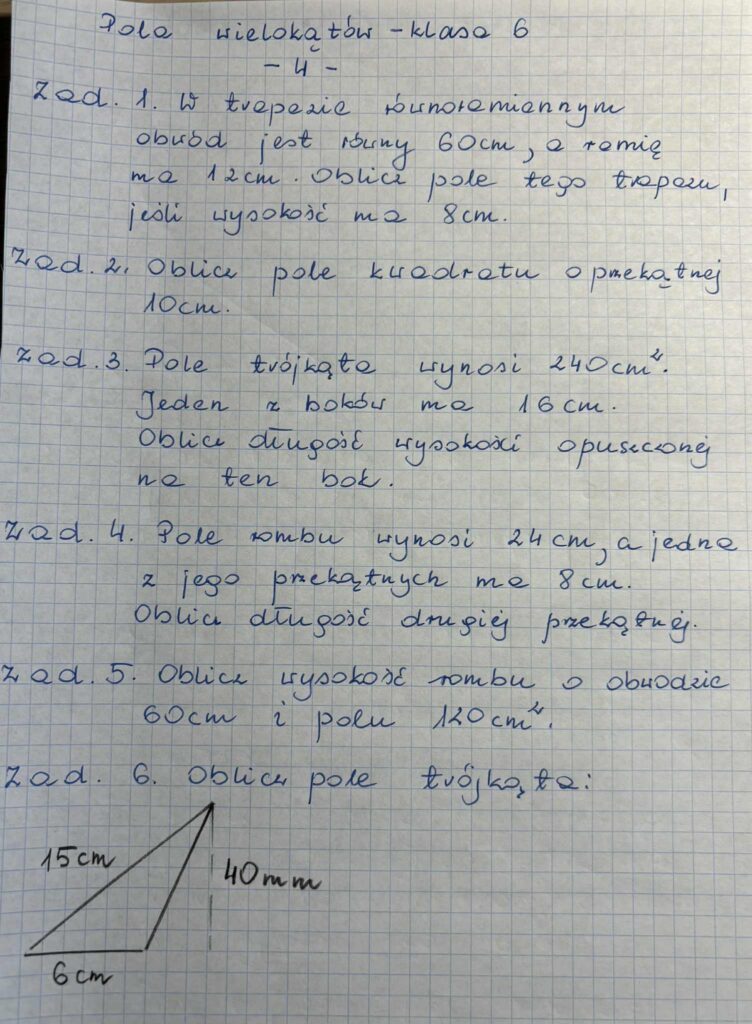 Pola wielokątów - klasa 6
- 4 -
Zad. 1. W trapezie równoramiennym
obwód jest równy 60cm, a ramię
ma 12cm. Oblicz pole tego trapezu,
jeśli wysokość ma 8cm.
Zad. 2. Oblicz pole kwadratu o przekątnej
10cm.
Zad. 3. Pole trójkąta wynosi 240cm².
Jeden z boków ma 16cm.
Oblicz długość wysokości opuszczonej
na ten bok.
Zad. 4. Pole rombu wynosi 24cm, a jedna
z jego przekątnych ma 8cm.
Oblicz długość drugiej przekątnej.
Zad. 5. Oblicz wysokość rombu o obwodzie
60cm i polu 120cm².
Zad. 6. Oblicz pole trójkąta:
15cm
40mm
6cm